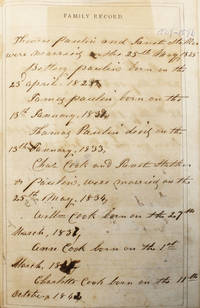 FAMILY RECORD.
Thomas paulin and Janet
were married on the 25th May,
Betsey paulin born on the
23 april, 182
James paulin born on the
15th January, 183
Thomas Paulin died on the
13th January, 1833.
Chas Cook and Janet
or Paulin, were married on the
25th May, 1834,
Willm Cook born on the 27th
March, 183
Ann Cook born on the 1st
March, 18
Charlotte Cook born on the 11th
October, 184